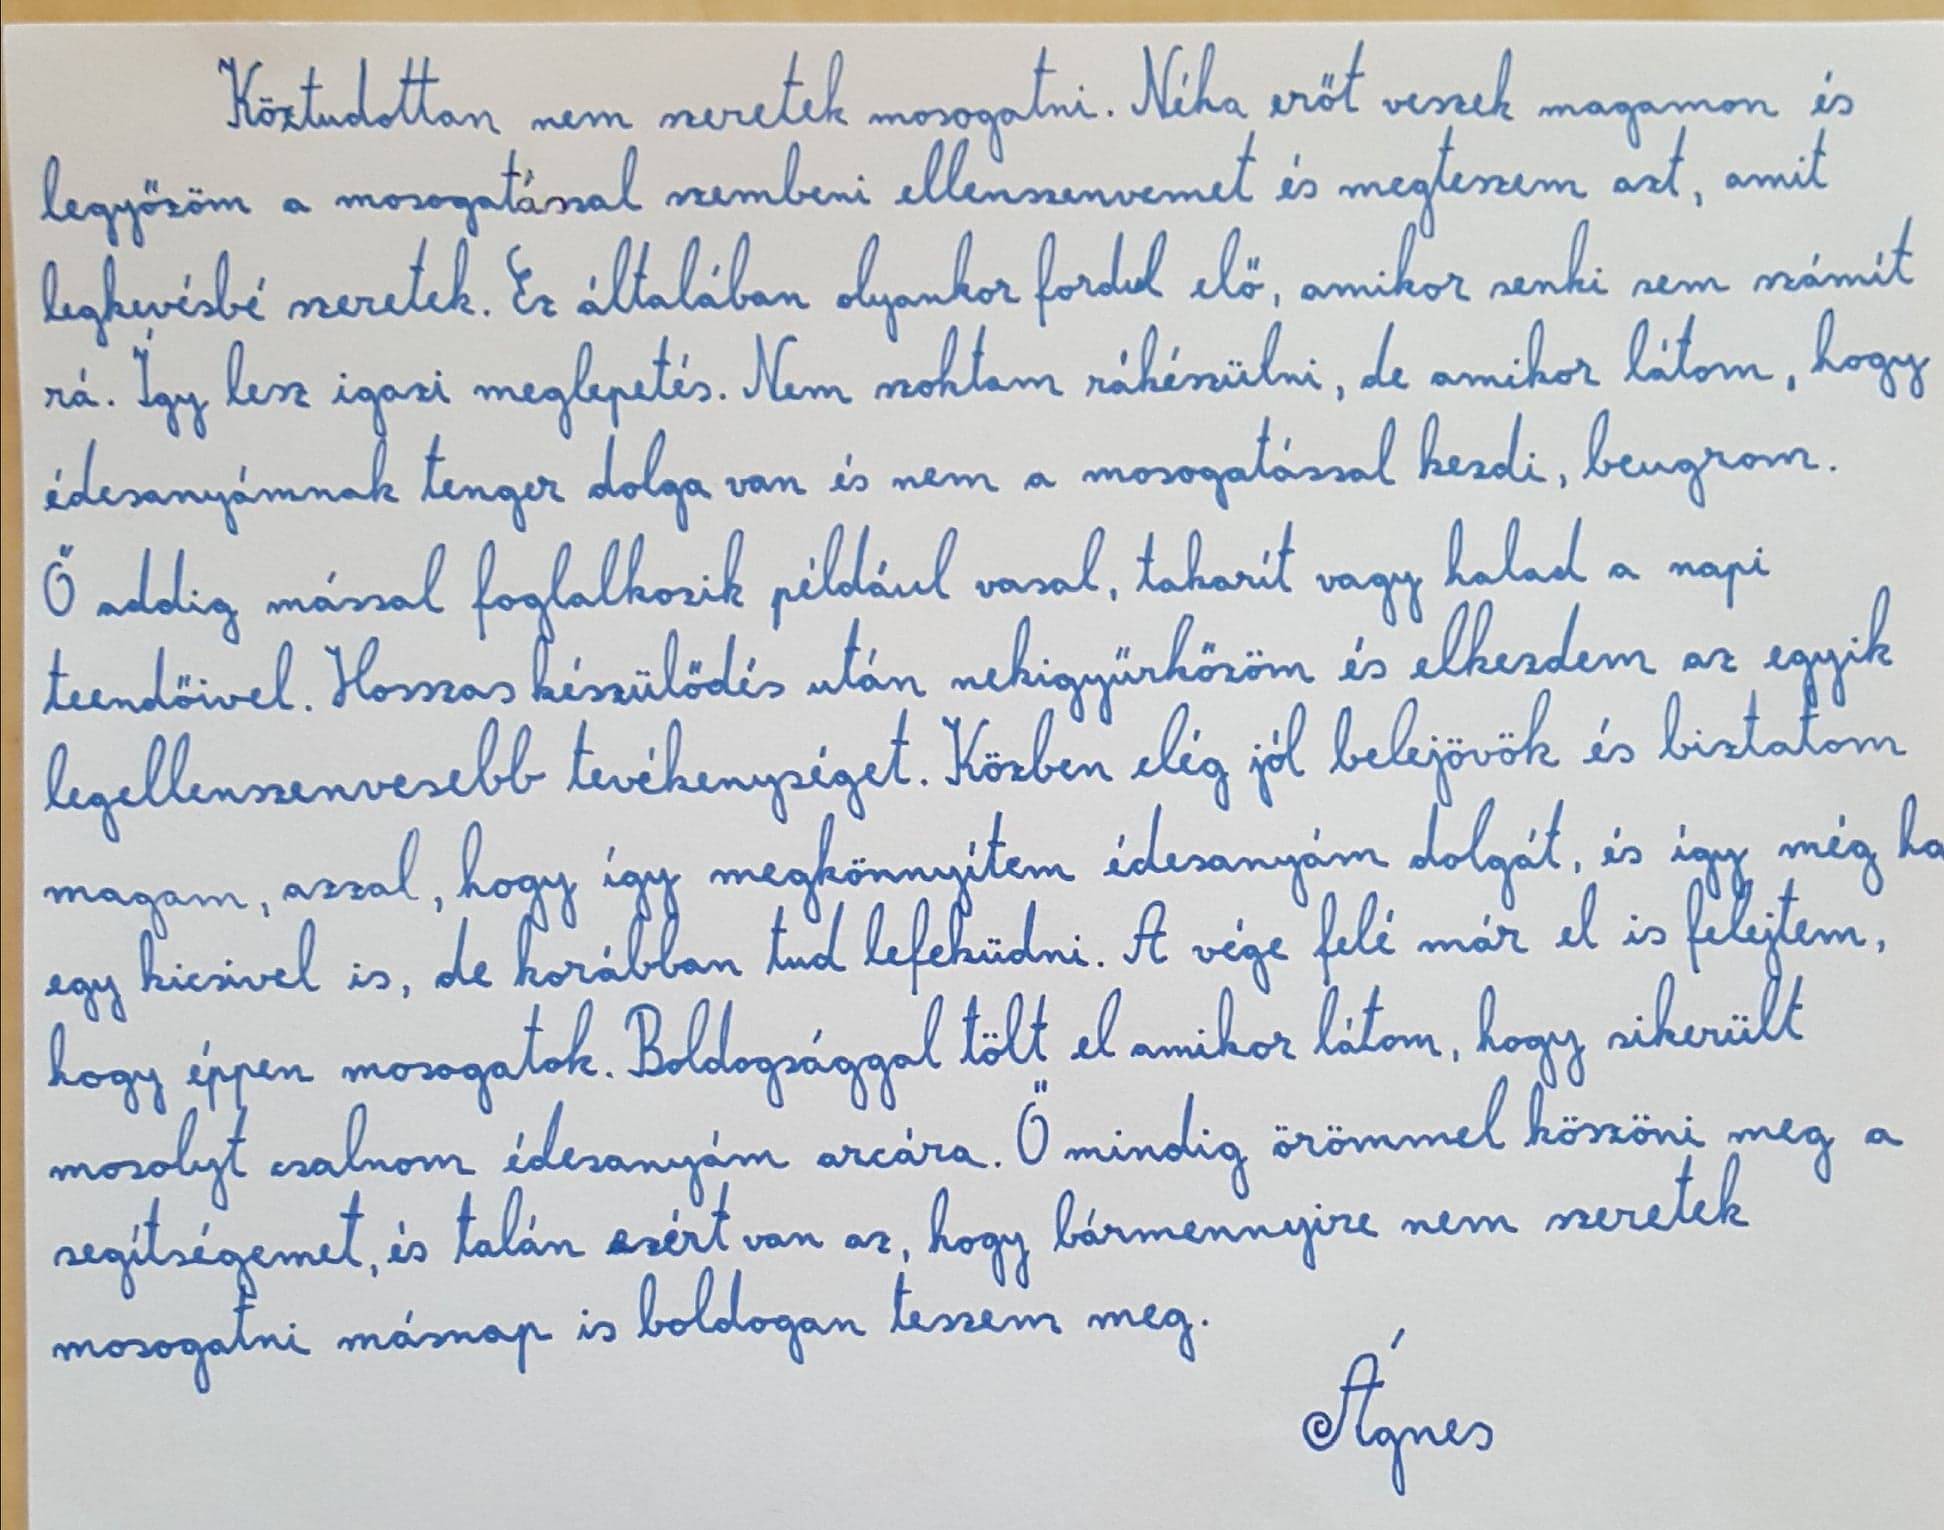 Köztudottan nem szeretek mosogatni. Néha erőt veszek magamon és
legyőzöm a mosogatással szembeni ellenszenvemet és megteszem azt, amit
legkevésbé szeretek. Ez általában olyankor fordul elő, amikor senki sem számít
rá. Így lesz igazi meglepetés. Nem szoktam rákészülni, de amikor látom, hogy
édesanyámnak tenger dolga van és nem a mosogatással kezdi, beugrom.
Ő addig mással foglalkozik például vasal, takarít vagy halad a napi
teendőivel. Hosszas készülődés után nekigyűrkőzöm és elkezdem az egyik
legellenszenvesebb tevékenységet. Közben elég jól belejövök és biztatom
magam, azzal, hogy így megkönnyítem édesanyám dolgát, és így még ha
egy kicsivel is, de korábban tud lefeküdni. A vége felé már el is felejtem,
hogy éppen mosogatok. Boldogsággal tölt el amikor látom, hogy sikerült
mosolyt csalnom édesanyám arcára. Ő mindig örömmel köszöni meg a
segítségemet, és talán ezért van az, hogy bármennyire nem szeretek
mosogatni másnap is boldogan teszem meg.
Ágnes